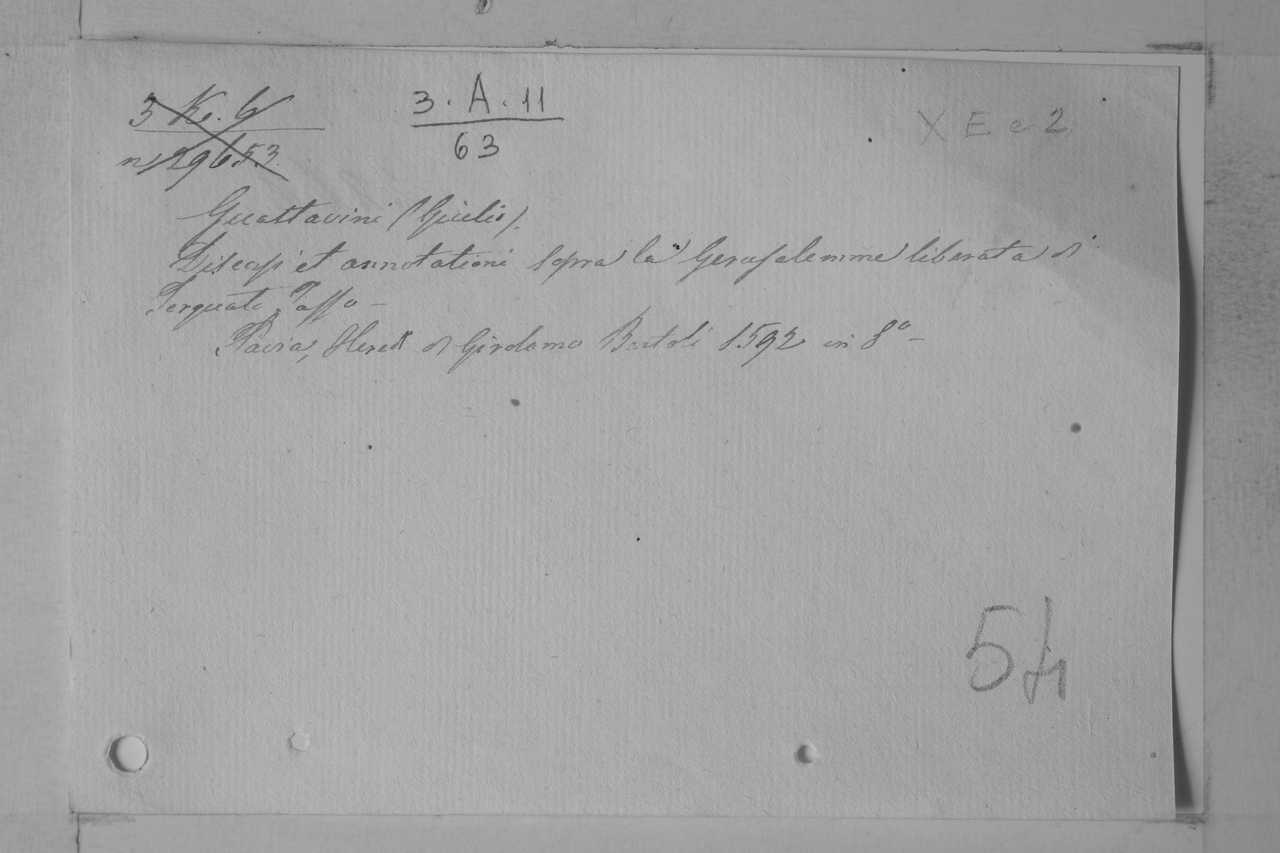 3 K. 6
n 29653
3. A. 11
63
X E c 2
Guastavini (Giulio).
Discorsi et annotationi sopra la Gerusalemme liberata di
Torquato Tasso -
Pavia, Heredi di Girolamo Bartoli 1592 in 8° -
54